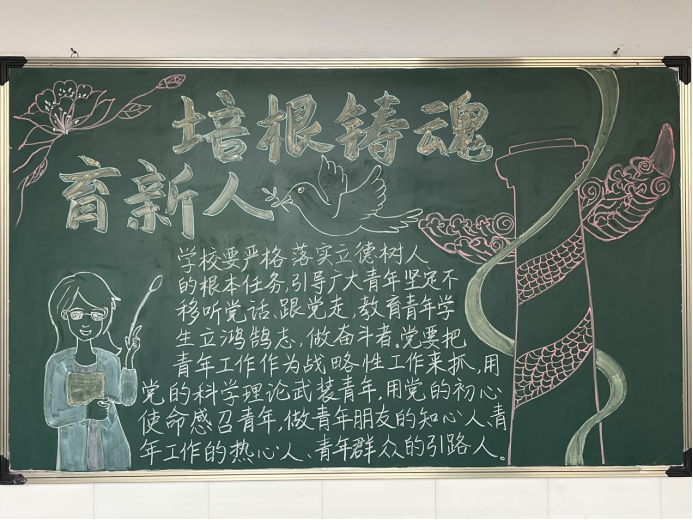 培根铸魂
育新人
学校要严格落实立德树人
的根本任务,引导广大青年坚定不
移听党话、跟党走,教育青年学
生立鸿鹄志,做奋斗者,党要把
青年工作作为战略性工作来抓,用
党的科学理论武装青年,用党的初心
使命感召青年,做青年朋友的知心人、青
年工作的热心人、青年群众的引路人。